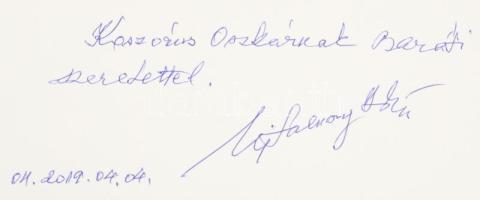 Koszorús Oszkárnak Baráti
szeretettel.
04. 2019.04.04.